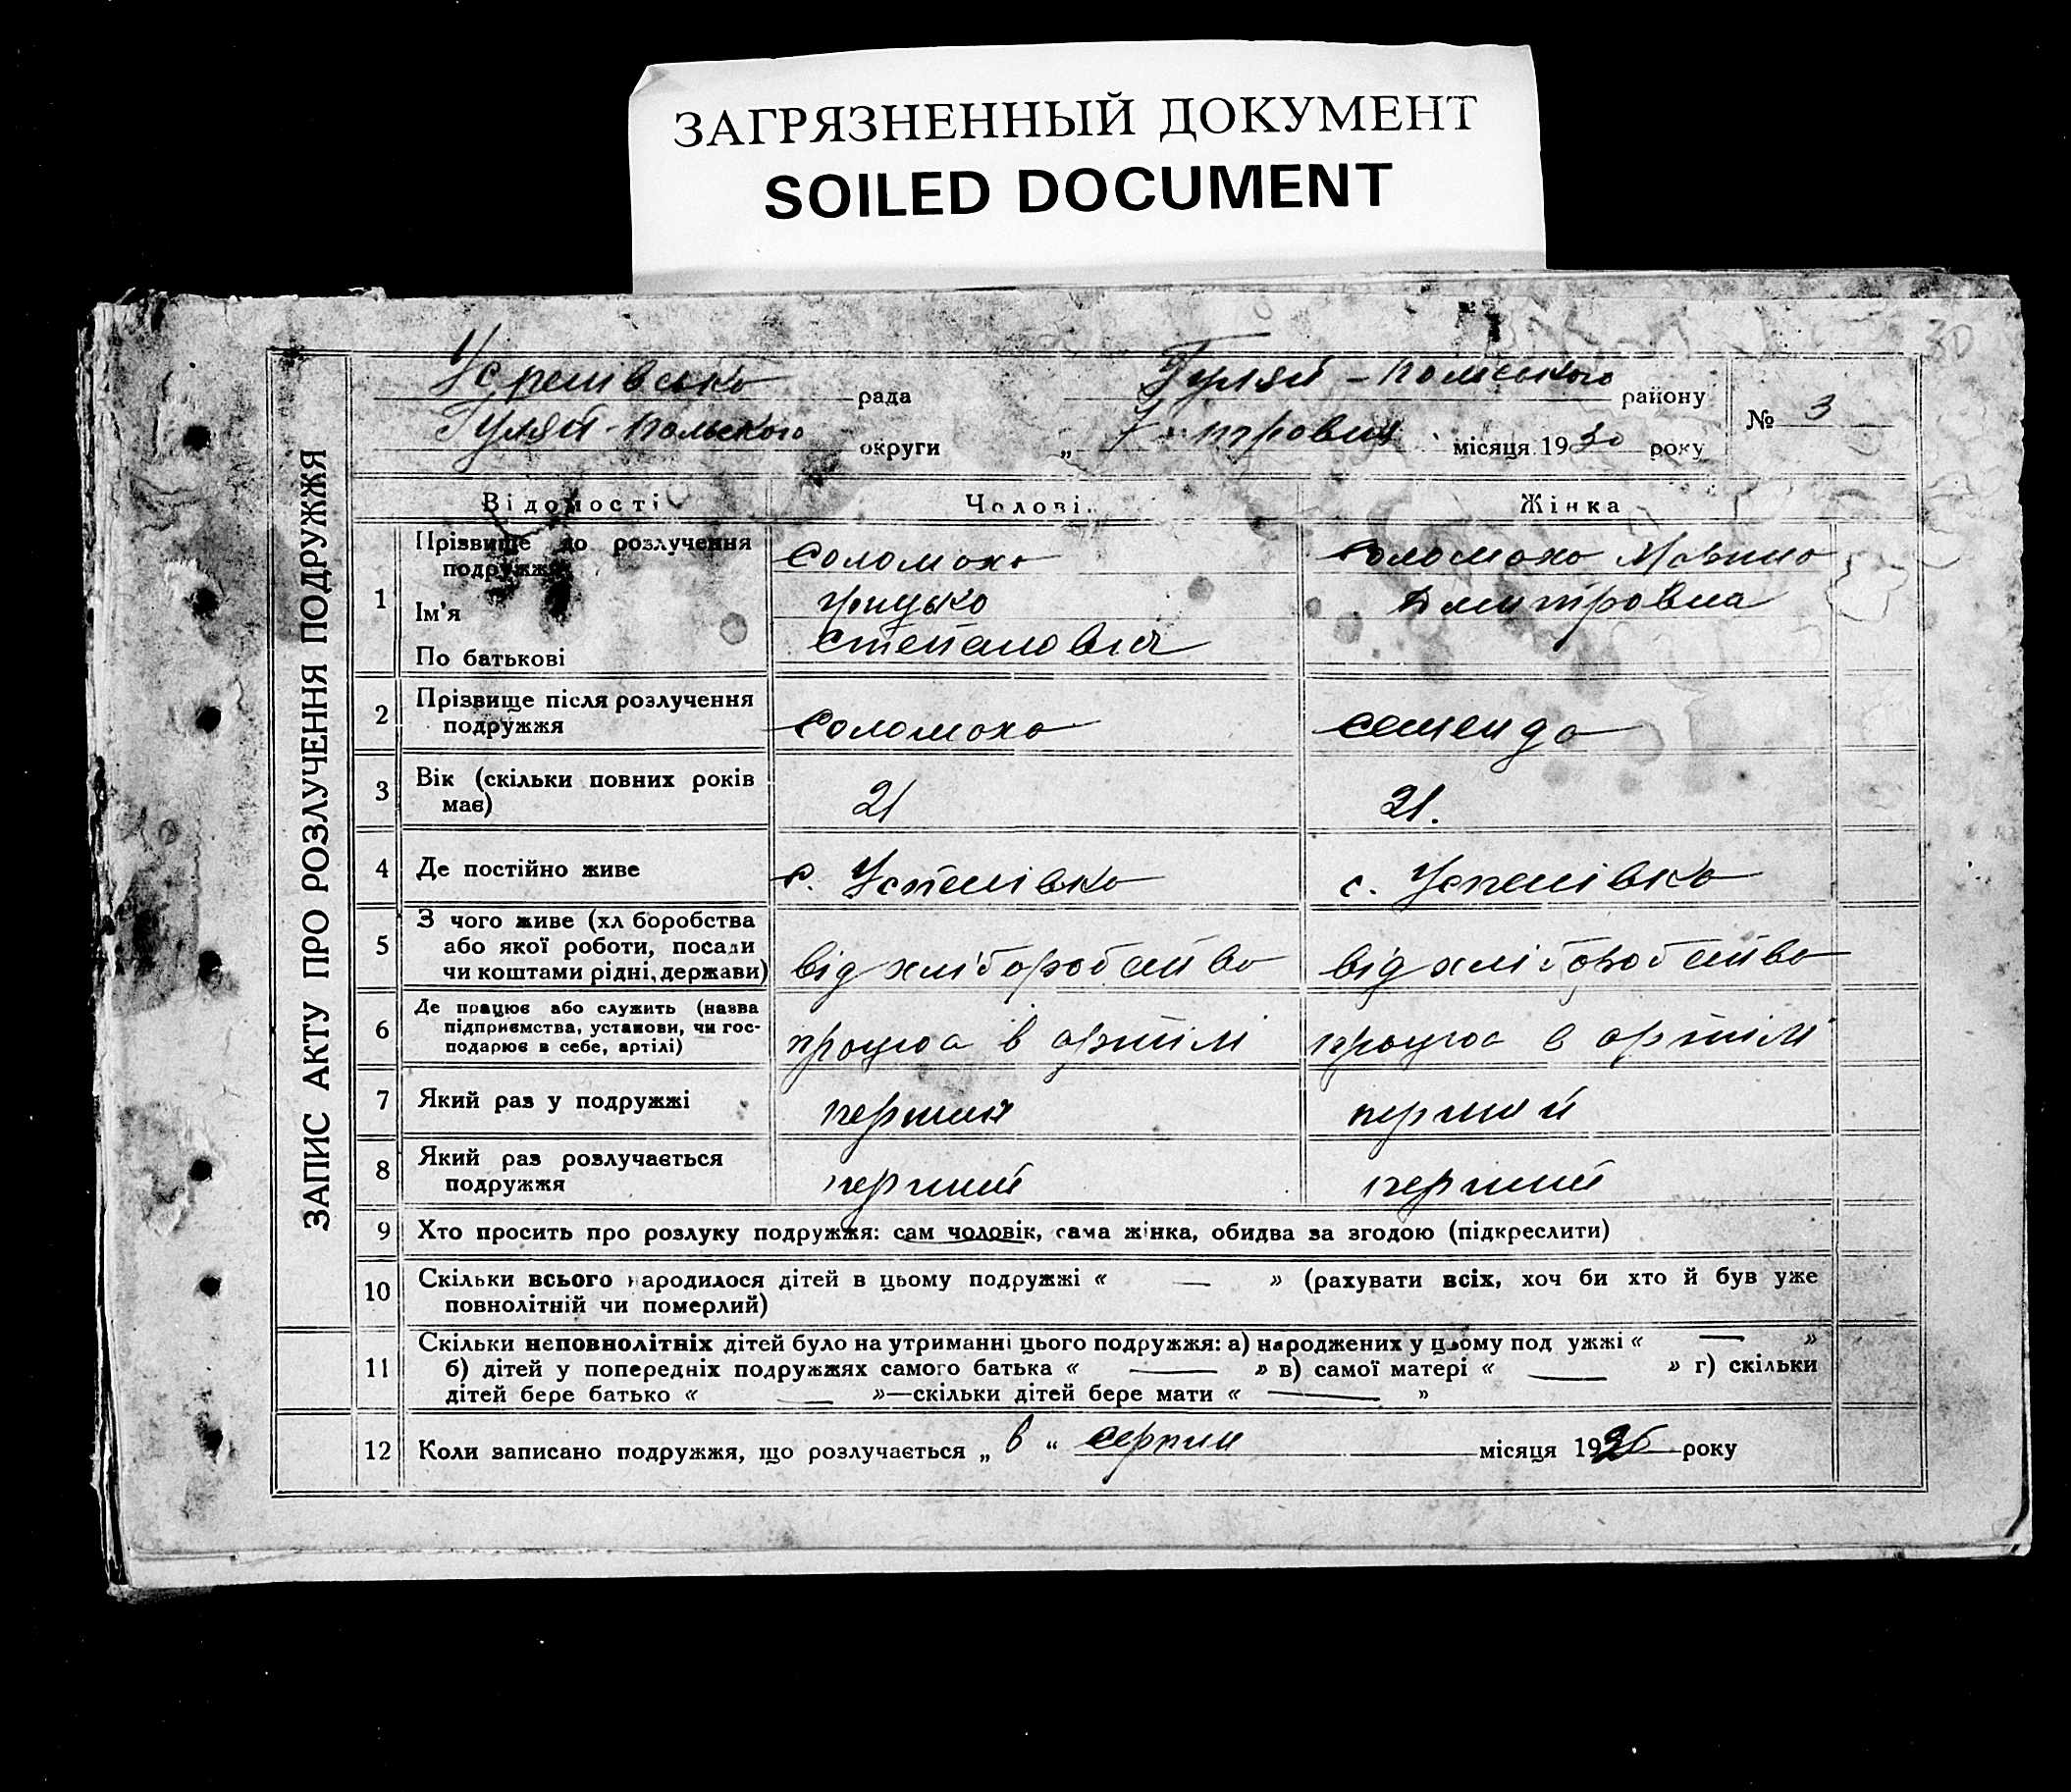 ЗАГРЯЗНЕННЫЙ ДОКУМЕНТ
SOILED DOCUMENT
30
ЗАПИС АКТУ ПРО РОЗЛУЧЕННЯ ПОДРУЖЖЯ
Успенівська рада Гуляй-Польського району № 3
Гуляй-Польского округи „ місяця 1930 року
Відомості Чолові Жінка
1 Прізвище до розлучення подружжя Соломаха Соломаха
Ім'я Грицько Дмитровна
По батькові Степанович
2 Прізвище після розлучення
подружжя Соломаха
3 Вік (скільки повних років
має) 21 21.
4 Де постійно живе с. Успенівка с. Успенівка
5 З чого живе (хл боробства
або якої роботи, посади
чи коштами рідні, держави) від хліборобства від хліборобства
6 Де працює або служить (назва
підприємства, установи, чи гос-
подарює в себе, артілі) працює в артілі працює в артілі
7 Який раз у подружжі перший перший
8 Який раз розлучається
подружжя перший перший
9 Хто просить про розлуку подружжя: сам чоловік, сама жінка, обидва за згодою (підкреслити)
10 Скільки всього народилося дітей в цьому подружжі « — » (рахувати всіх, хоч би хто й був уже
повнолітній чи померлий)
11 Скільки неповнолітніх дітей було на утриманні цього подружжя: а) народжених у цьому под ужжі « — »
б) дітей у попередніх подружжях самого батька « — » в) самої матері « — » г) скільки
дітей бере батько « — »—скільки дітей бере мати « — »
12 Коли записано подружжя, що розлучається „ в “ серпни місяця 1926 року